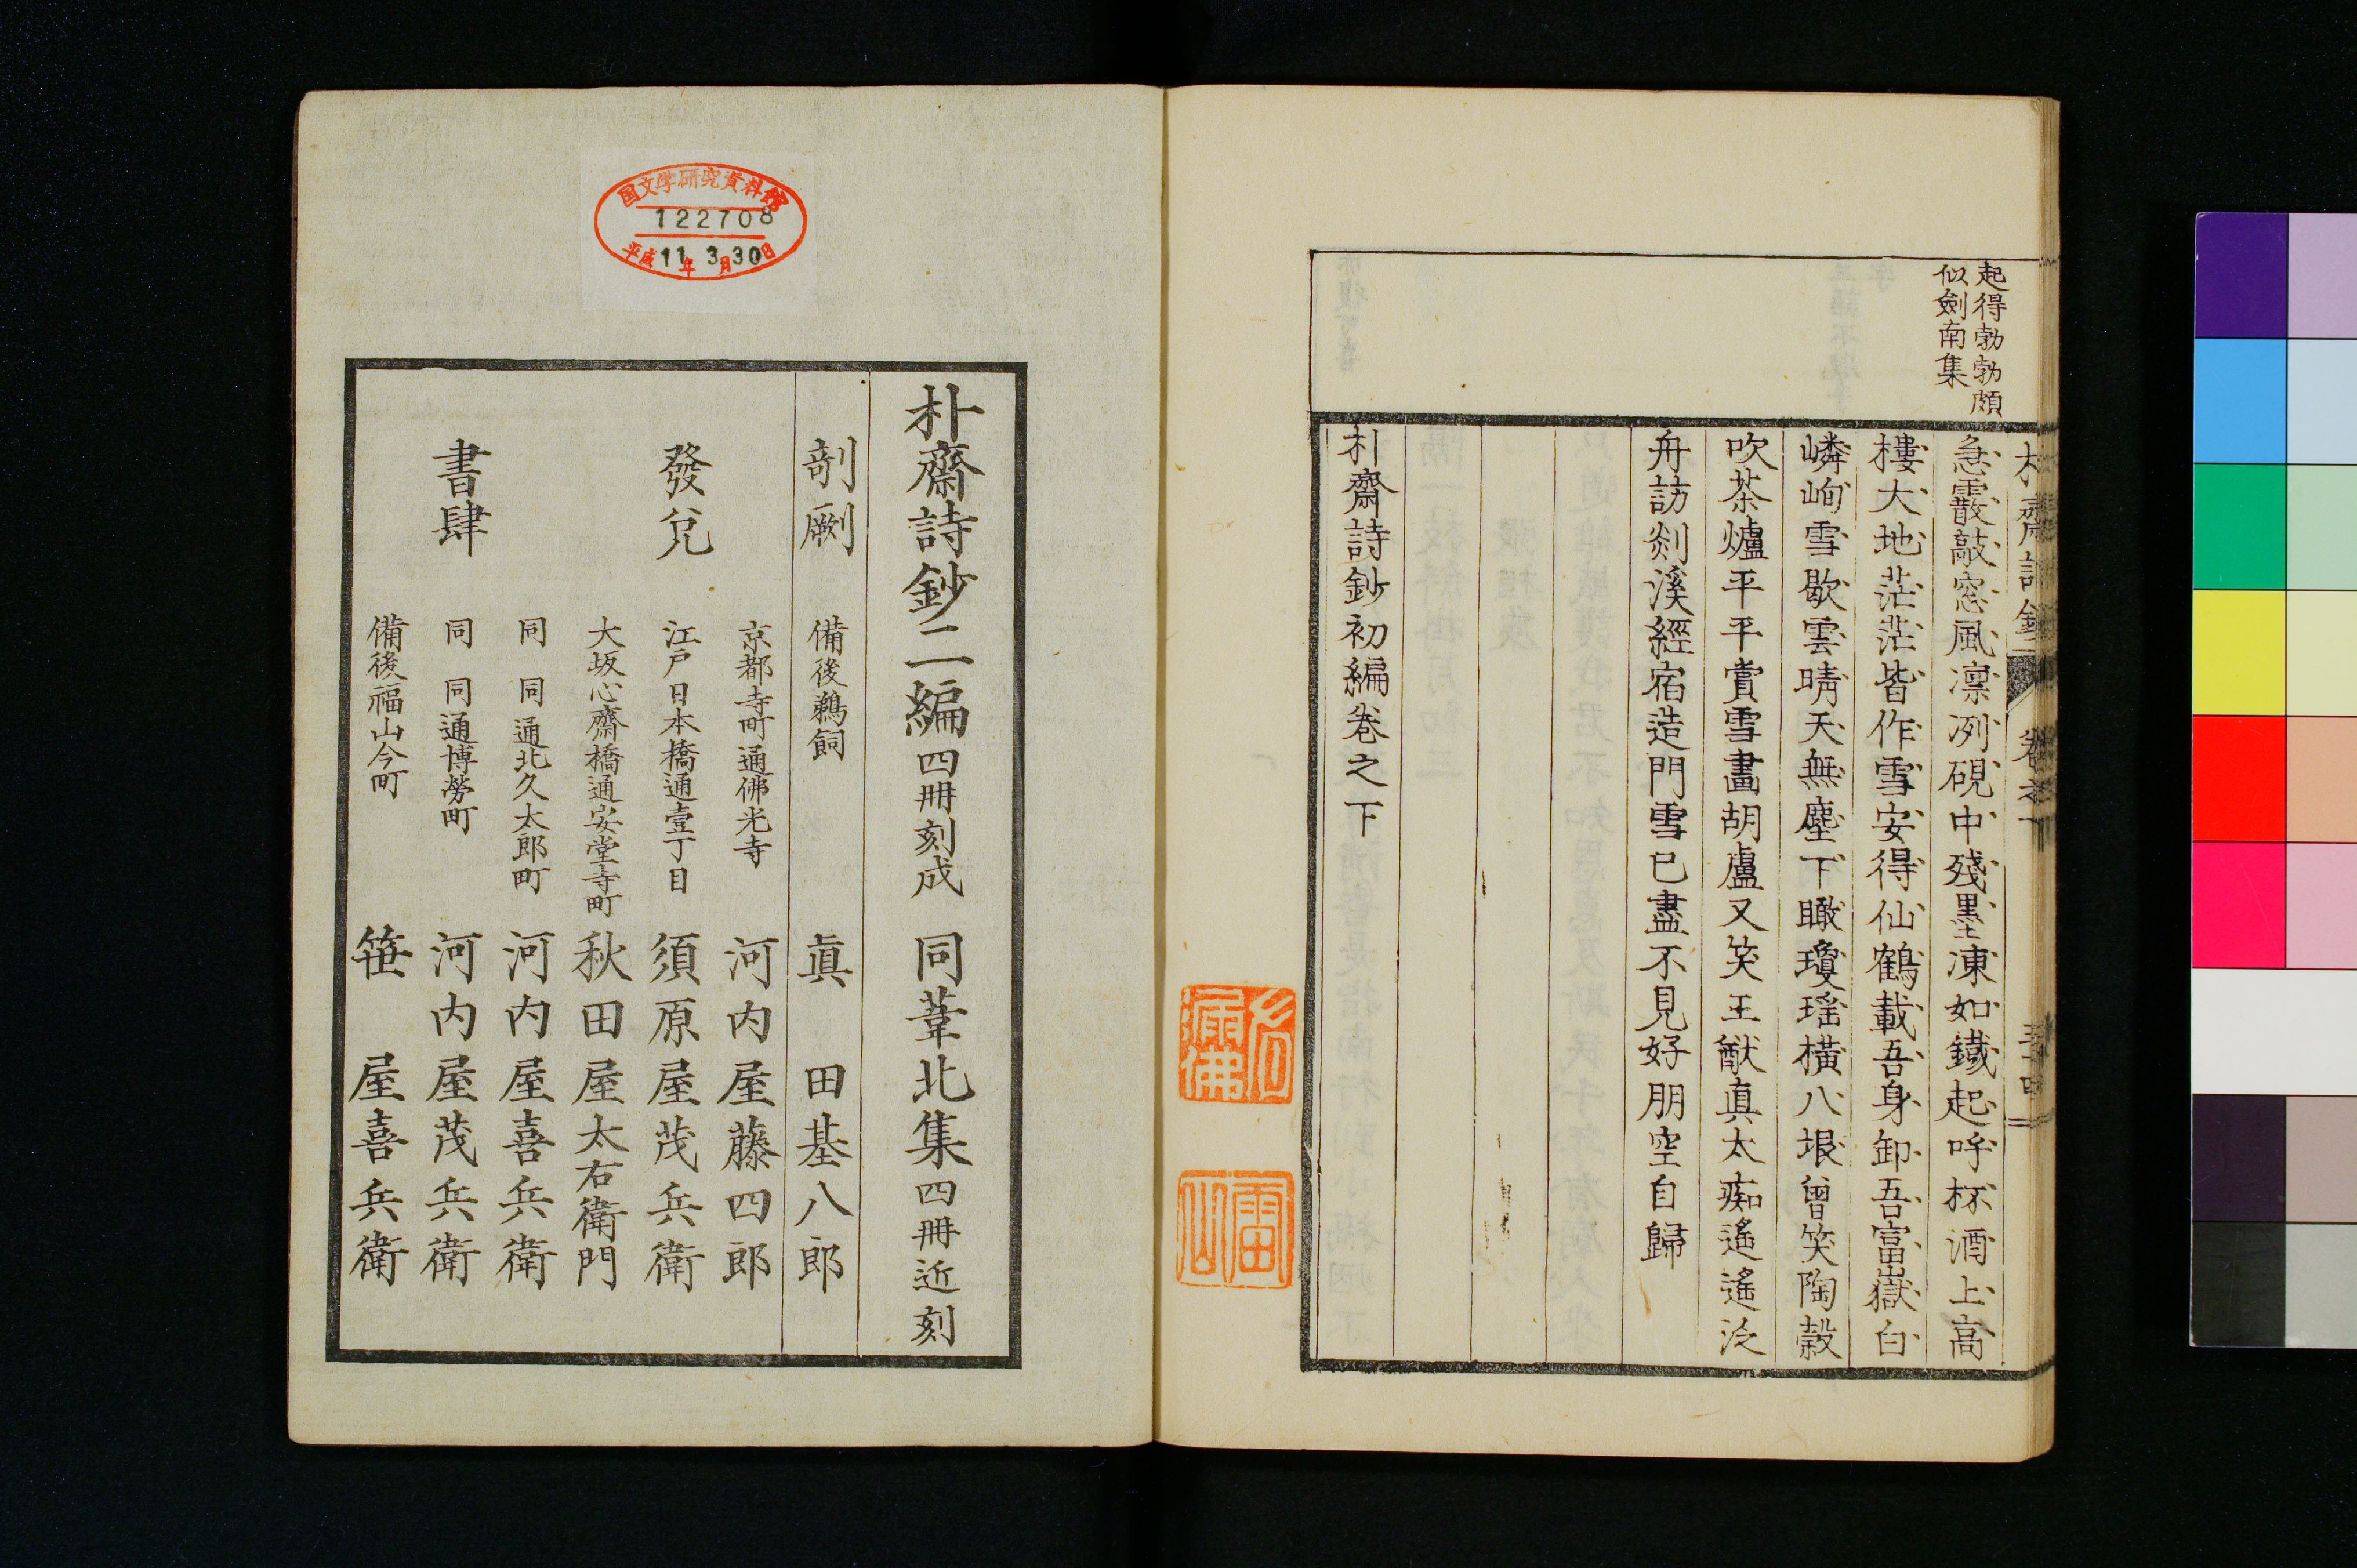 起得勃勃頗
似劍南集
急霰敲窓風凛冽硯中殘墨凍如鐵起呼杯酒上高
樓大地茫茫皆作雪安得仙鶴載吾身卸吾富嶽白
嶙峋雪歇雲晴天無塵下瞰瓊瑶橫八垠曾笑陶穀
吹茶爐平平賞雪畵胡盧又笑王猷眞太痴遙遙泛
舟訪剡溪經宿造門雪已盡不見好朋空自歸
朴齋詩鈔初編卷之下
国文学研究資料館
122708
平成11年3月30日
朴齋詩鈔二編四冊刻成 同葦北集四冊近刻
剞劂 備後鵜飼 眞田基八郎
發兌
京都寺町通佛光寺 河内屋藤四郎
江戸日本橋通壹丁目 須原屋茂兵衛
大坂心齋橋通安堂寺町 秋田屋太右衛門
同 同通北久太郎町 河内屋喜兵衛
書肆
同 同通博勞町 河内屋茂兵衛
備後福山今町 笹屋喜兵衛